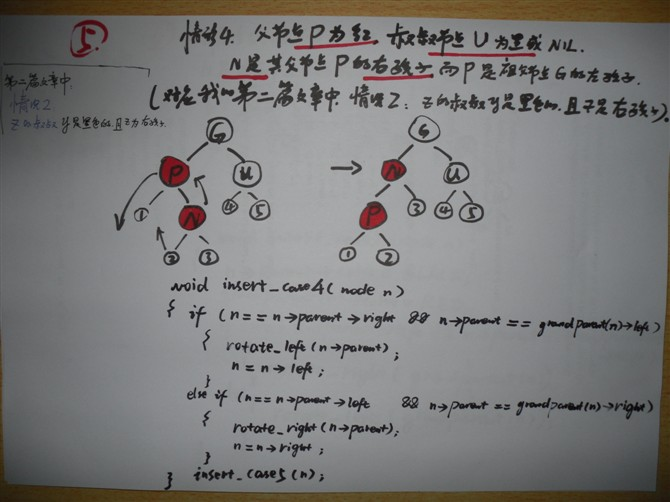 ⑤.
情况4. 父节点P为红, 叔叔节点U为黑或NIL.
N是其父节点P的右孩子, 而P是祖父节点G的左孩子.
(对应我的第二篇文章中, 情况2: z的叔叔y是黑色的, 且z是右孩子).
第二篇文章中,
情况2
z的叔叔y是黑色的, 且z为右孩子
G
P U
1 N 4 5
2 3
G
N U
P 3 4 5
1 2
void insert_case4(node n)
{ if (n==n→parent→right && n→parent == grandparent(n)→left)
{ rotate_left(n→parent);
n=n→left;
}
else if (n==n→parent→left && n→parent == grandparent(n)→right)
{
rotate_right(n→parent);
n=n→right;
}
} insert_case5(n);